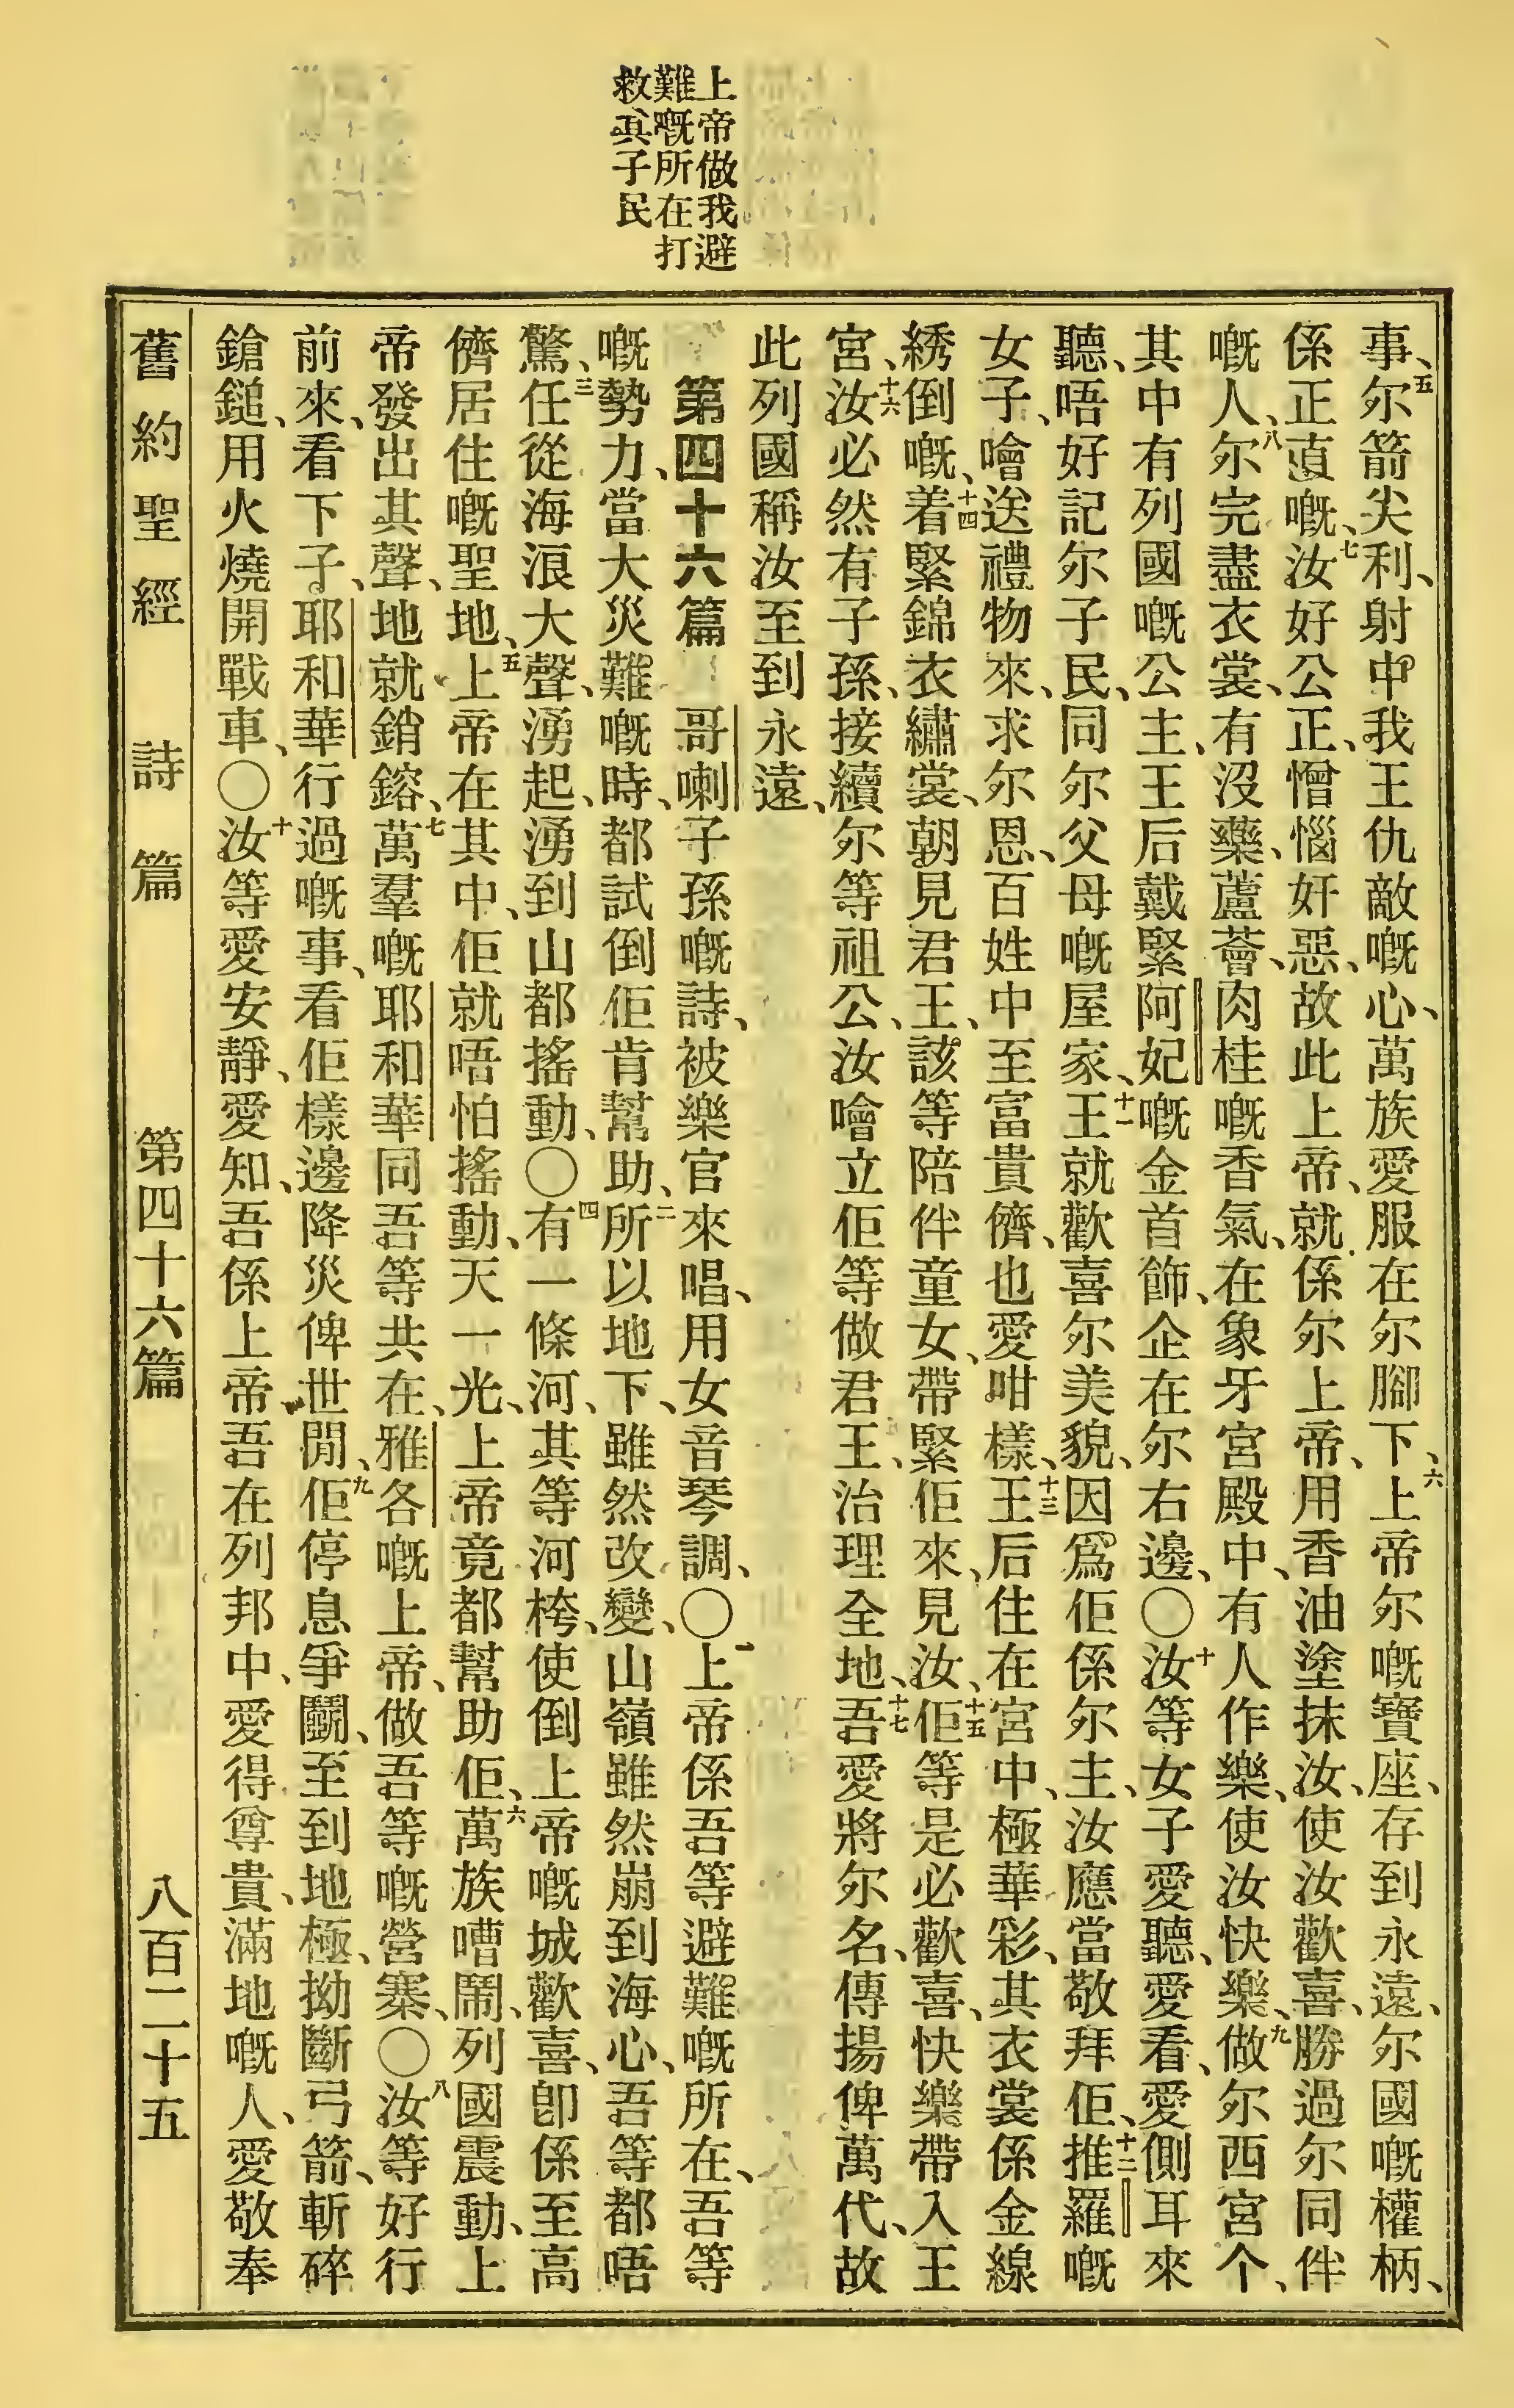 上帝做我避
難嘅所在打
救其子民
事、五尔箭尖利、射中我王仇敵嘅心、萬族愛服在尔腳下、六上帝尔嘅寶座、存到永遠、尔國嘅權柄、
係正直嘅、七汝好公正、憎惱奸惡、故此上帝、就係尔上帝、用香油塗抹汝、使汝歡喜、勝過尔同伴
嘅人、八尔完盡衣裳、有沒藥、蘆薈、肉桂嘅香氣、在象牙宮殿中、有人作樂、使汝快樂、九做尔西宮个、
其中有列國嘅公主、王后戴緊阿妃嘅金首飾、企在尔右邊、〇十汝等女子愛聽、愛看、愛側耳來
聽、唔好記尔子民、同尔父母嘅屋家、十一王就歡喜尔美貌、因爲佢係尔主、汝應當敬拜佢、十二推羅嘅
女子、噲送禮物來、求尔恩、百姓中至富貴儕、也愛咁樣、十三王后住在宮中、極華彩、其衣裳係金線
綉倒嘅、十四着緊錦衣繡裳、朝見君王、該等陪伴童女、帶緊佢來、見汝、十五佢等是必歡喜、快樂帶入王
宮、十六汝必然有子孫、接續尔等祖公、汝噲立佢等做君王、治理全地、十七吾愛將尔名、傳揚俾萬代、故
此列國稱汝至到永遠、
第四十六篇 哥喇子孫嘅詩、被樂官來唱、用女音琴調、〇一上帝係吾等避難嘅所在、吾等
嘅勢力、當大災難嘅時、都試倒佢肯幫助、二所以地下、雖然改變、山嶺雖然崩到海心、吾等都唔
驚、三任從海浪大聲、湧起、湧到山都搖動、〇四有一條河、其等河桍、使倒上帝嘅城歡喜、卽係至高
儕居住嘅聖地、五上帝在其中、佢就唔怕搖動、天一光、上帝竟都幫助佢、六萬族嘈鬧、列國震動、上
帝發出其聲、地就銷鎔、七萬羣嘅耶和華同吾等共在、雅各嘅上帝、做吾等嘅營寨、〇八汝等好行
前來、看下子、耶和華行過嘅事、看佢樣邊降災俾世閒、九佢停息爭鬭、至到地極、拗斷弓箭、斬碎
鎗鎚、用火燒開戰車、〇十汝等愛安靜、愛知、吾係上帝、吾在列邦中、愛得尊貴、滿地嘅人、愛敬奉
舊約聖經 詩篇 第四十六篇 八百二十五